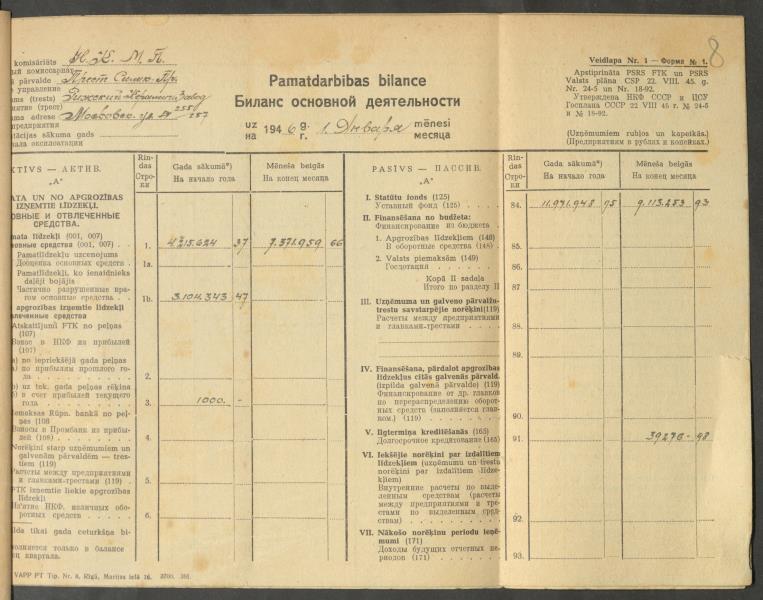 8
komisāriāts Н. К. М. П.
ый комиссариат
pārvalde Трест
управление
ums (trests) Рижский завод
иятие (трест)
uma adrese Московск. ул. № 257
предприятия
tācijas sākuma gads
чала эксплоатации
Pamatdarbības bilance
Баланс основной деятельности
uz 1946 g. 1. Января mēnesi
на г. месяца
Veidlapa Nr. 1 — Форма № 1.
Apstiprināta PSRS FTK un PSRS
Valsts plāna CSP 22. VIII. 45. g.
Nr. 24-5 un Nr. 18-92.
Утверждена НКФ СССР и ЦСУ
Госплана СССР 22 VIII 45 г. № 24-5
и № 18-92.
(Uzņēmumi rubļos un kapeikās.)
(Предприятиям в рублях и копейках.)
KTĪVS — АКТИВ.
„A"
Rindas
Строки
Gada sākumā*)
На начало года
Mēneša beigās
На конец месяца
PASĪVS — ПАССИВ.
„A"
Rindas
Строки
Gada sākumā*)
На начало года
Mēneša beigās
На конец месяца
ATA UN NO APGROZĪBAS
IZŅEMTIE LĪDZEKĻI.
ОВНЫЕ И ОТВЛЕЧЕННЫЕ
СРЕДСТВА.
mata līdzekļi (001, 007)
новные средства (001, 007) 1. 4.215.624 37 7.371.959 66
Pamatlīdzekļu uzcenojums
Дооценка основных средств 1a.
Pamatlīdzekļi, ko ienaidnieks
daļēji bojājis
Частично разрушенные вра-
гом основные средства 1b. 3.104.343 47
apgrozības izņemtie līdzekļi
влеченные средства
Atskaitījumi FTK no peļņas
(107)
Взнос в НКФ из прибылей
(107)
a) no iepriekšējā gada peļņas
а) по прибылям прошлого го-
да 2.
b) uz tek. gada peļņas rēķina
б) в счет прибылей текущего
года 3. 1000. -
Iemaksas Rūpn. bankā no peļ-
ņas (108)
Взносы в Промбанк из прибы-
лей (108) 4.
Norēķini starp uzņēmumiem un
galvenām pārvaldēm — tres-
tiem (119)
Расчеты между предприятиями
и главками-трестами (119) 5.
FTK izņemtie liekie apgrozības
līdzekļi
Изъятие НКФ. излишних обо-
ротных средств 6.
ilda tikai gada ceturkšņa bi-
полняется только в балансе
ец квартала.
VAPP PT Tip. Nr. 8, Rīgā, Marijas ielā 16.
I. Statūtu fonds (125)
Уставный фонд (125) 84. 11.971.948 75 9.113.253 93
II. Finansēšana no budžeta:
Финансирование из бюджета
1. Apgrozības līdzekļiem (148)
В оборотные средства (148) 85.
2. Valsts piemaksām (149)
Госдотация 86.
Kopā II sadaļa
Итого по разделу II 87.
III. Uzņēmuma un galveno pārvalžu-
trestu savstarpējie norēķini (119)
Расчеты между предприятиями
и главками-трестами 88.
89.
IV. Finansēšana, pārdalot apgrozības
līdzekļus citās galvenās pārvald.
(izpilda galvenā pārvalde) (119)
Финансирование от др. главков
по перераспределению оборот-
ных средств (заполняется глав-
ком.) (119) 90.
V. Ilgtermiņa kreditēšanās (165)
Долгосрочное кредитование (165) 91. 39276 - 48
VI. Iekšējie norēķini par izdalītiem
līdzekļiem (uzņēmumu un trestu
norēķini par izdalītiem līdze-
kļiem)
Внутренние расчеты по выде-
ленным средствам (расчеты
между предприятиями и тре-
стами по выделенным сред-
ствам) 92.
VII. Nākošo norēķinu periodu ieņē-
mumi (171)
Доходы будущих отчетных пе-
риодов (171) 93.